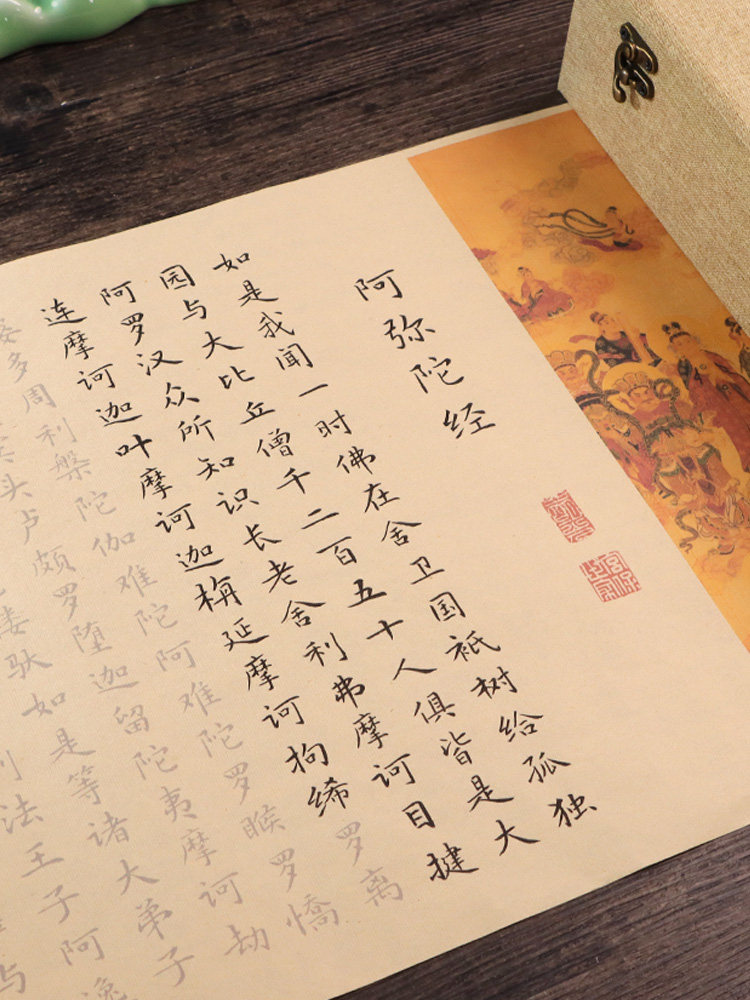 阿弥陀经
如是我闻一时佛在舍卫国祇树给孤独
园与大比丘僧千二百五十人俱皆是大
阿罗汉众所知识长老舍利弗摩诃目揵
连摩诃迦叶摩诃迦栴延摩诃拘絺罗离
婆多周利槃陀伽难陀阿难陀罗睺罗憍
头卢颇罗堕迦留陀夷摩诃劫
驮如是等诸大弟子
法王子阿逸
与
宫保世家